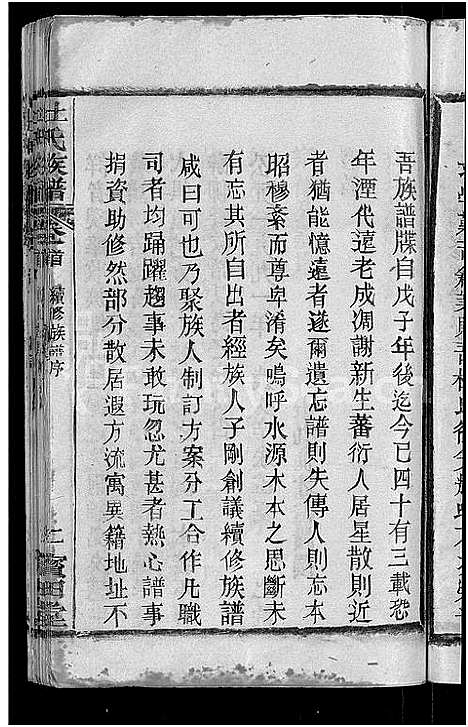 吾族譜牒自戊子年後迄今已四十有三載恐
年湮代遠老成凋謝新生蕃衍人居星散則近
者猶能憶遠者遂爾遺忘譜則失傳人則忘本
昭穆紊而尊卑淆矣嗚呼水源木本之思斷未
有忘其所自出者經族人子剛創議續修族譜
咸曰可也乃聚族人制訂方案分工合作凡職
司者均踴躍趨事未敢玩忽尤甚者熱心譜事
捐資助修然部分散居遐方流寓異籍地址不
氏族譜
首
續修族譜序